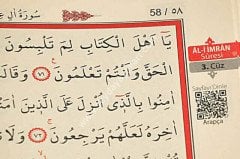 سُورَةُ اٰلِ عِ
58 / ٥٨
يَٓا اَهْلَ الْكِتَابِ لِمَ تَلْبِسُونَ
الْحَقَّ وَاَنْتُمْ تَعْلَمُونَ ٧١ وَقَالَتْ
اٰمِنُوا بِالَّذٖٓي اُنْزِلَ عَلَى الَّذٖينَ اٰمَنُوا
اٰخِرَهُ لَعَلَّهُمْ يَرْجِعُونَ ٧٢ وَلَا
ÂL-İ İMRÂN
Sûresi
3. Cüz
Sayfayı Dinle
Arapça